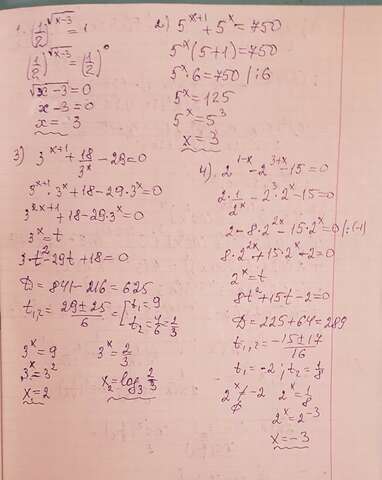 1. (1/2)^√(x-3) = 1
(1/2)^√(x-3) = (1/2)^0
√(x-3) = 0
x-3=0
x = 3
2) 5^(x+1) + 5^x = 750
5^x (5+1) = 750
5^x · 6 = 750 / :6
5^x = 125
5^x = 5^3
x = 3
3) 3^(x+1) + 18/3^x - 29 = 0
3^(x+1) · 3^x + 18 - 29 · 3^x = 0
3^(2x+1) + 18 - 29 · 3^x = 0
3^x = t
3t^2 - 29t + 18 = 0
D = 841 - 216 = 625
t₁,₂ = (29 ± 25)/6 [t₁ = 9
t₂ = 4/6 = 2/3
3^x = 9 3^x = 2/3
3^x = 3^2
x = 2 x₂ = log₃ 2/3
4). 2^(1-x) - 2^(3+x) - 15 = 0
2 · 1/2^x - 2^3 · 2^x - 15 = 0
2 - 8 · 2^(2x) - 15 · 2^x = 0 / :(-1)
8 · 2^(2x) + 15 · 2^x - 2 = 0
2^x = t
8t^2 + 15t - 2 = 0
D = 225 + 64 = 289
t₁,₂ = (-15 ± 17)/16
t₁ = -2; t₂ = 1/8
2^x ≠ -2 2^x = 1/8
∅ 2^x = 2^-3
x = -3